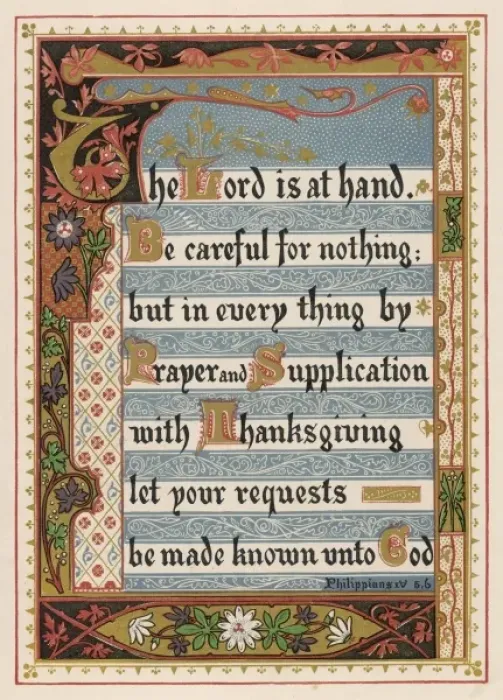 The Lord is at hand.
Be careful for nothing:
but in every thing by
Prayer and Supplication
with Thanksgiving
let your requests
be made known vnto God
Philippians IV 5.6